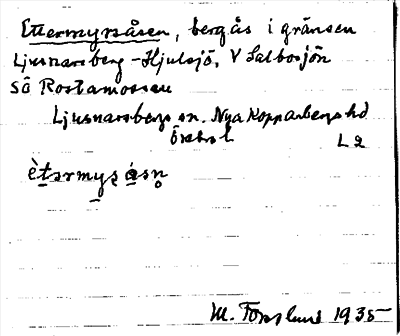 Ettermyrsåsen, bergås i gränsen
Ljusnarsberg-Hjulsjö, V Salbosjön
SÖ Rostamossen
Ljusnarsbergs sn. Nya Kopparbergs hd
Örebro l
L 2
M. Forslund 1935